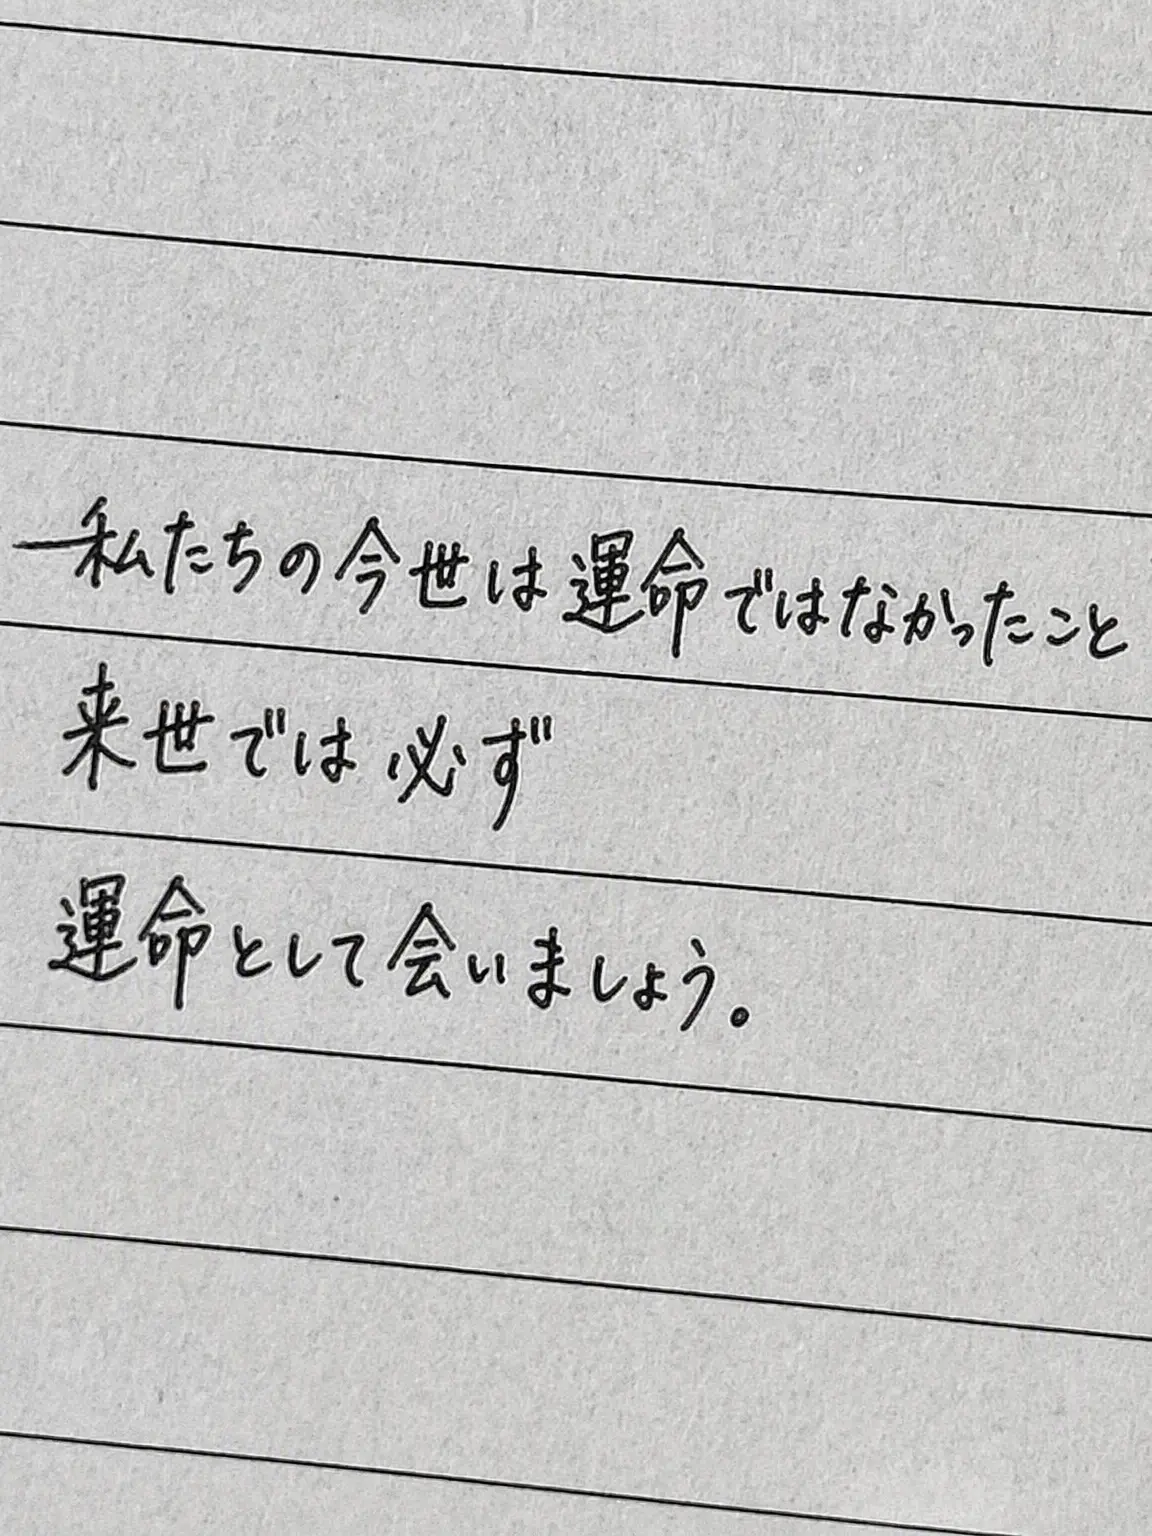 一私たちの今世は運命ではなかったこと
来世では必ず
運命として会いましょう。